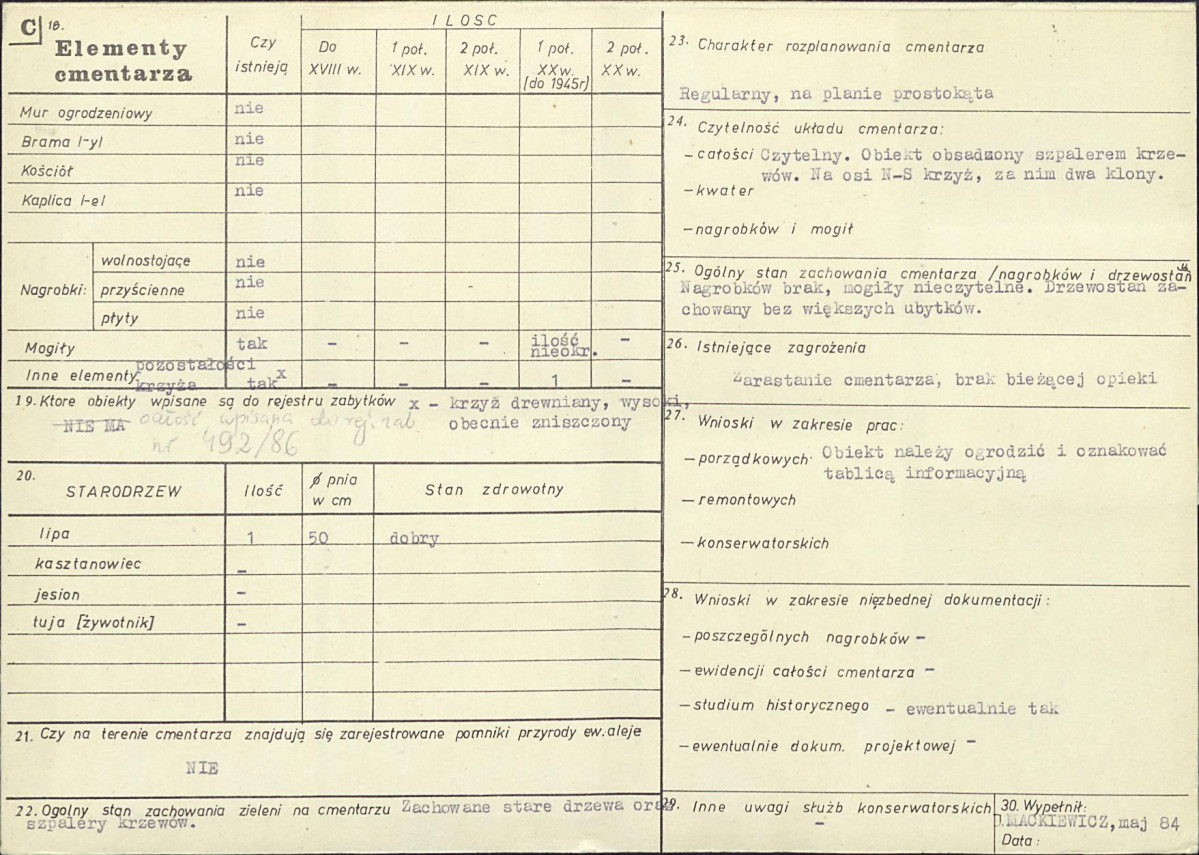 C 18.
Elementy
cmentarza
Czy
istnieją
ILOSC
Do
XVIII w.
1 poł.
XIX w.
2 poł.
XIX w.
1 poł.
XX w.
[do 1945r]
2 poł.
XX w.
Mur ogrodzeniowy nie
Brama l-yl nie
Kościół nie
Kaplica l-el nie
Nagrobki:
wolnostojące nie
przyścienne nie
płyty nie
Mogiły tak - - - ilość nieokr. -
Inne elementy pozostałości krzyża tak x - - - 1 -
19. Ktore obiekty wpisane są do rejestru zabytków x - krzyż drewniany, wysoki,
obecnie zniszczony
NIE MA całość wpisana do rej. zab.
nr 492/86
20.
STARODRZEW Ilość ϕ pnia w cm Stan zdrowotny
lipa 1 50 dobry
kasztanowiec -
jesion -
tuja [żywotnik] -
21. Czy na terenie cmentarza znajdują się zarejestrowane pomniki przyrody ew. aleje
NIE
22. Ogolny stan zachowania zieleni na cmentarzu Zachowane stare drzewa oraz
szpalery krzewów.
23. Charakter rozplanowania cmentarza
Regularny, na planie prostokąta
24. Czytelność układu cmentarza:
- całości Czytelny. Obiekt obsadzony szpalerem krze-
wów. Na osi N-S krzyż, za nim dwa klony.
- kwater
- nagrobków i mogił
25. Ogólny stan zachowania cmentarza /nagrobków i drzewostan
Nagrobków brak, mogiły nieczytelne. Drzewostan za-
chowany bez większych ubytków.
26. Istniejące zagrożenia
Zarastanie cmentarza, brak bieżącej opieki
27. Wnioski w zakresie prac:
- porządkowych Obiekt należy ogrodzić i oznakować
tablicą informacyjną
- remontowych
- konserwatorskich
28. Wnioski w zakresie nięzbednej dokumentacji:
- poszczególnych nagrobków -
- ewidencji całości cmentarza -
- studium historycznego - ewentualnie tak
- ewentualnie dokum. projektowej -
29. Inne uwagi służb konserwatorskich
-
30. Wypełnił:
J.MACKIEWICZ, maj 84
Data: